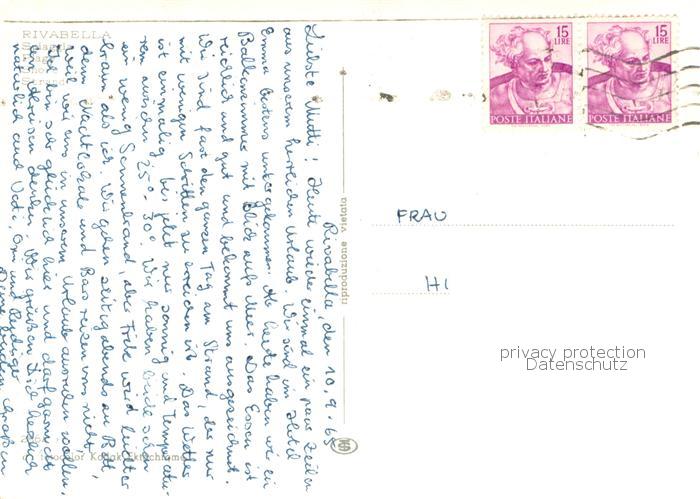 RIVABELLA
Spiaggia
Plage
Shore
Strand
Rivabella, den 10.9.65
Liebste Mutti! Heute wieder einmal ein paar Zeilen
aus unserem herrlichen Urlaub. Wir sind im Hotel
Emma bestens untergekommen. Ab heute haben wir ein
Balkonzimmer mit Blick aufs Meer. Das Essen ist
reichlich und gut und bekommt uns ausgezeichnet.
Wir sind fast den ganzen Tag am Strand, der nur
mit wenigen Schritten zu erreichen ist. Das Wetter
ist einmalig, bis jetzt nur sonnig und Temperatu-
ren zwischen 25°-30°. Wir haben beide schon
ein wenig Sonnenbrand, aber wird leichter
braun als ich. Wir gehen zeitig abends zu Bett,
denn Nachtlokale und Bars reizen uns nicht,
weil wir uns in unserem Urlaub ausruhen wollen.
Ich bin sehr glücklich hier und darf gar nicht
an denken. Wir grüßen Dich herzlich
natürlich auch Vati, Omi und
Deine beiden Großen
riproduzione vietata
FRAU
HI
15
LIRE
POSTE ITALIANE
15
LIRE
POSTE ITALIANE
privacy protection
Datenschutz
Kodak Ektachrome